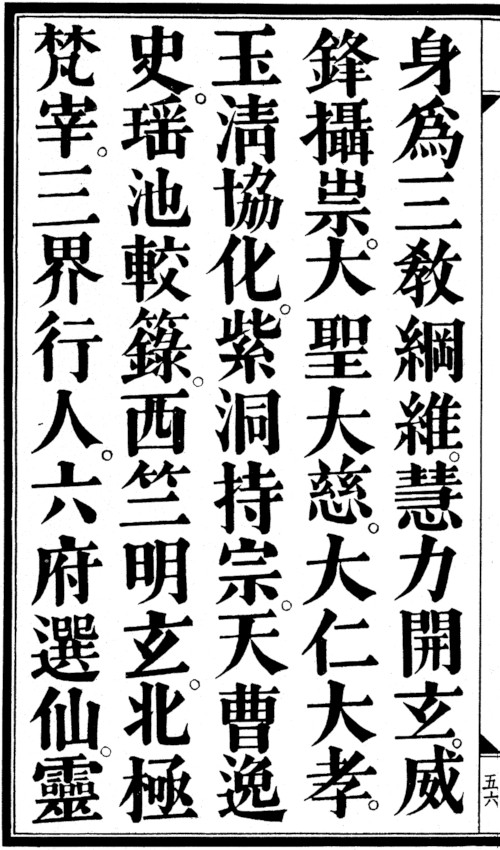 身為三教綱維。慧力開玄。威
鋒攝祟。大聖大慈。大仁大孝。
玉清協化。紫洞持宗。天曹逸
史。瑶池較籙。西竺明玄。北極
梵宰。三界行人。六府選仙。靈
五六